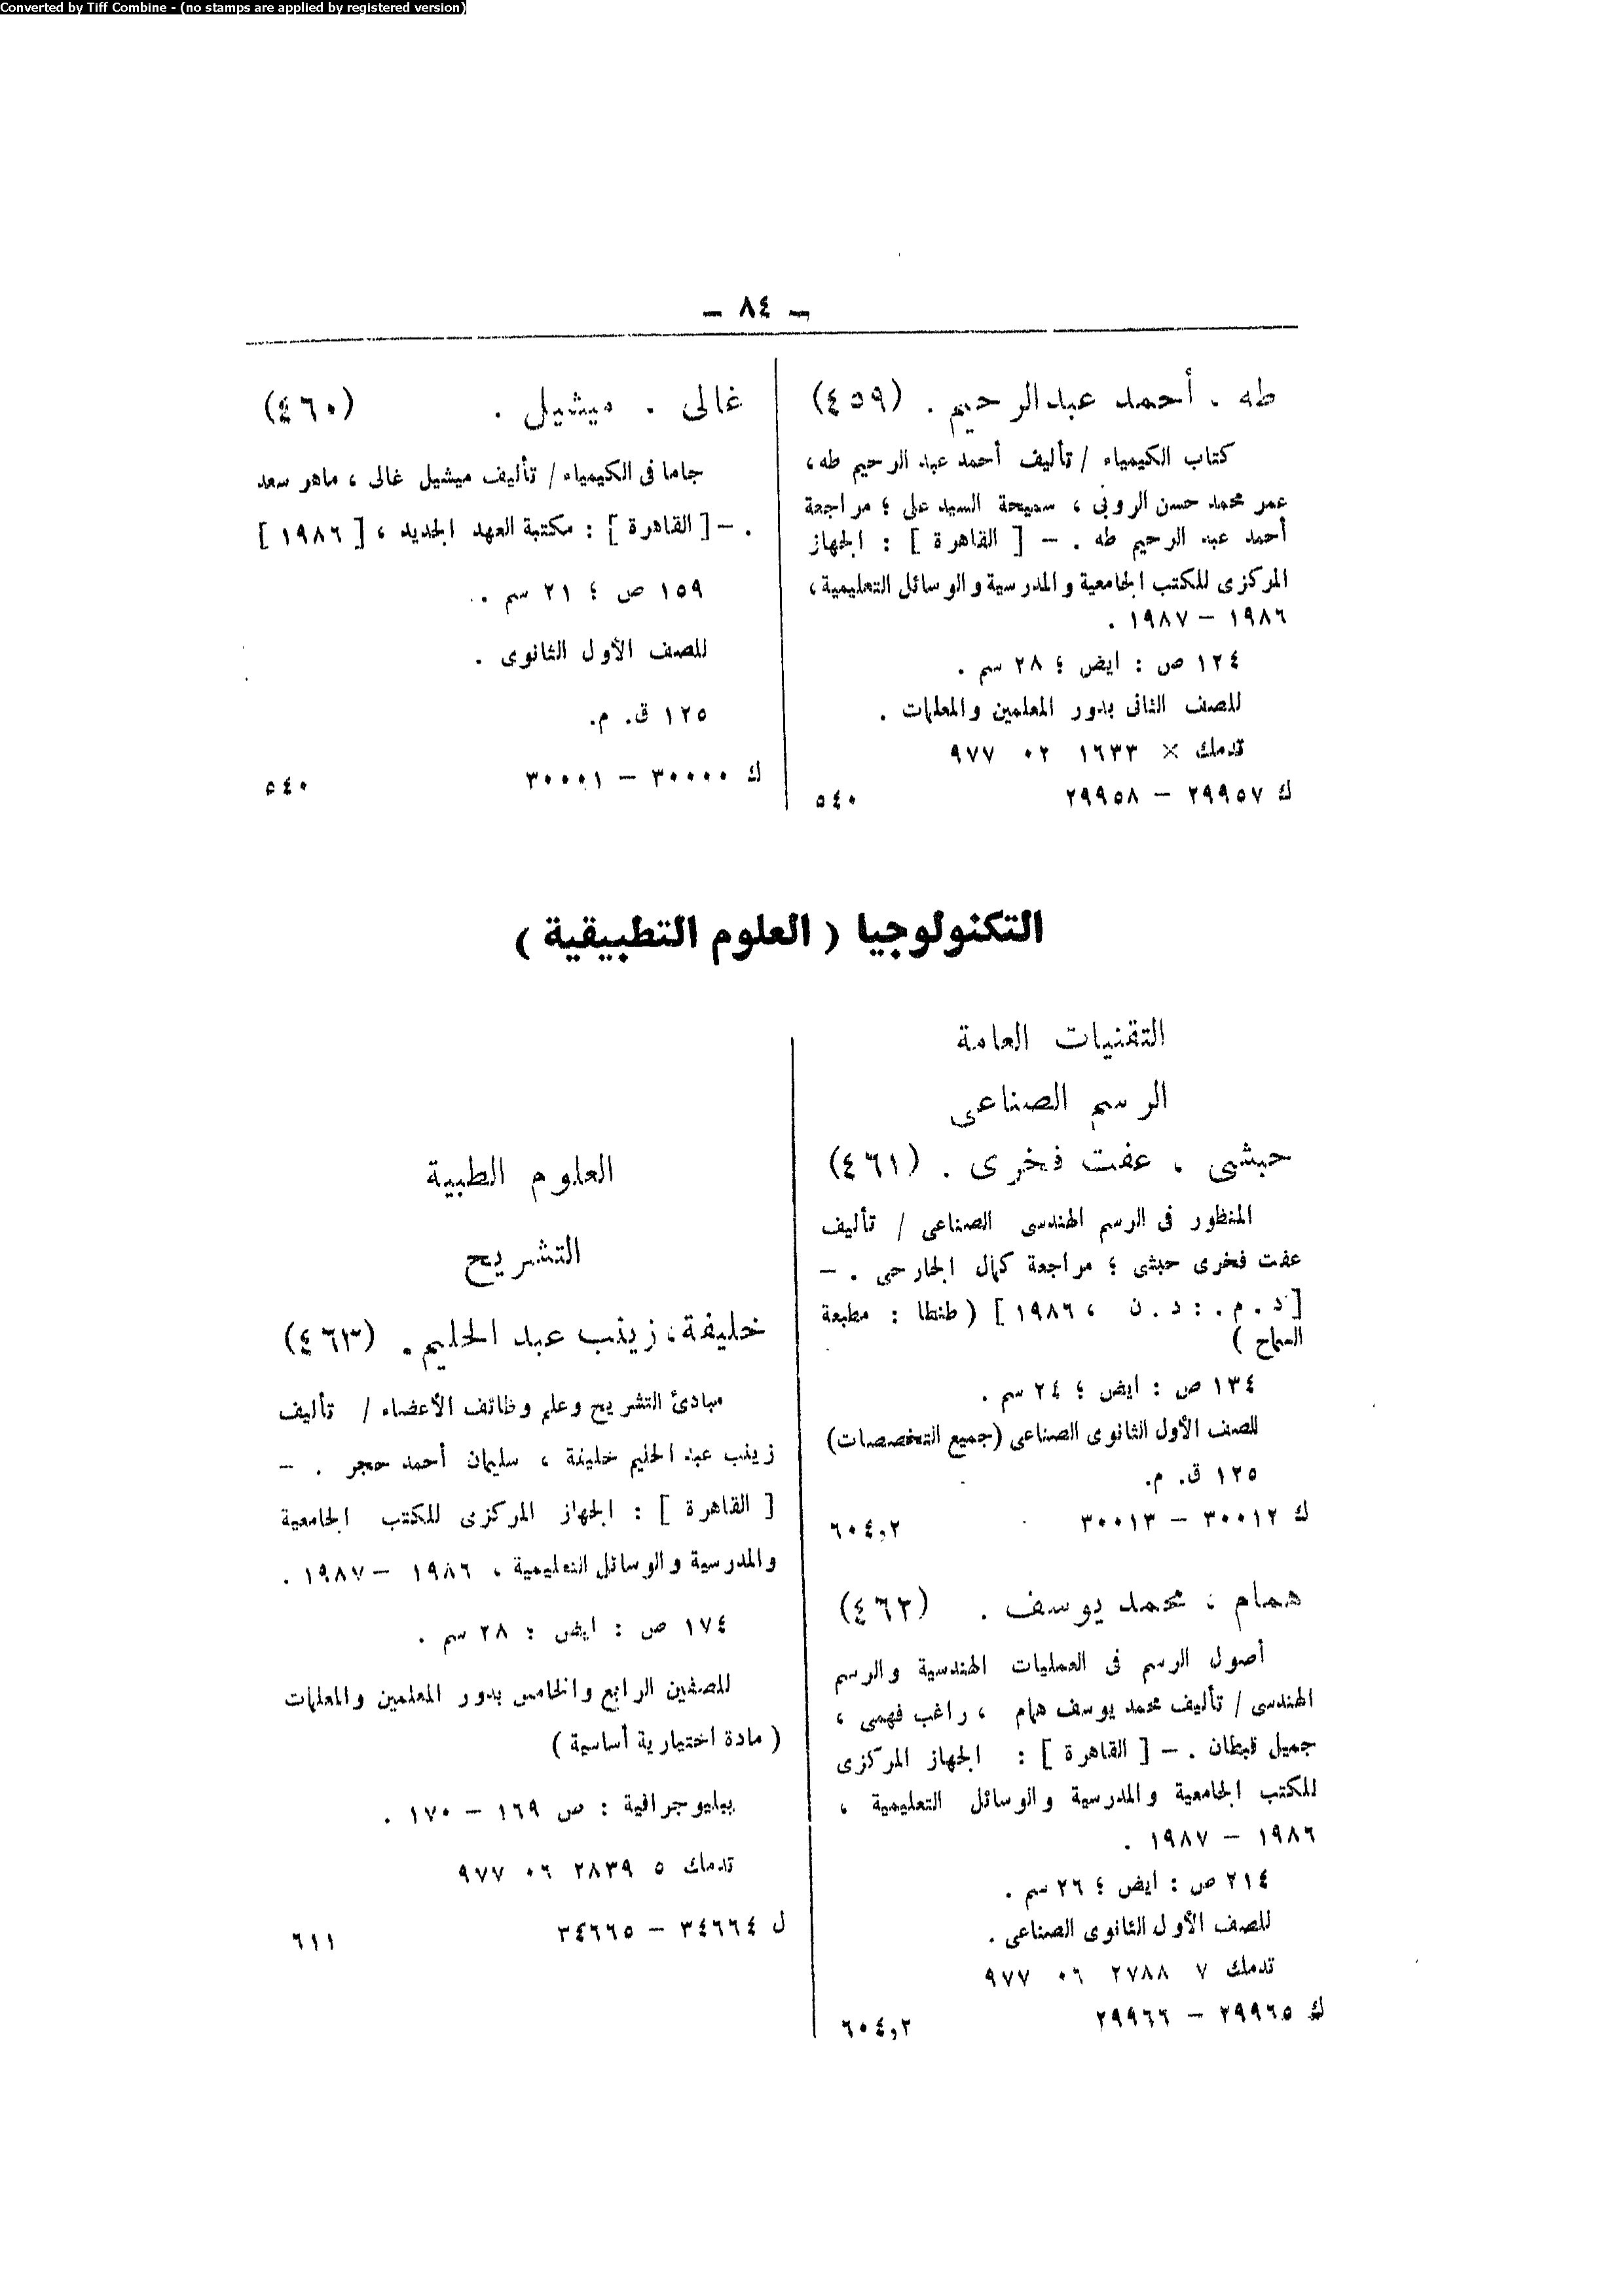 Converted by Tiff Combine - (no stamps are applied by registered version)
— ٨٤ —
طه . أحمد عبدالرحيم . (٤٥٩)
كتاب الكيمياء / تأليف أحمد عبد الرحيم طه،
عمر محمد حسن الروبى ، سميحة السيد على ؛ مراجعة
أحمد عبد الرحيم طه . — [ القاهرة ] : الجهاز
المركزى للكتب الجامعية والمدرسية والوسائل التعليمية ،
١٩٨٦ — ١٩٨٧ .
١٢٤ ص : ايض ؛ ٢٨ سم .
للصف الثانى بدور المعلمين والمعلمات .
تدمك × ١٦٣٣ ٠٢ ٩٧٧
ك ٢٩٩٥٧ — ٢٩٩٥٨ ٥٤٠
غالى . ميشيل . (٤٦٠)
جاما فى الكيمياء / تأليف ميشيل غالى ، ماهر سعد
. — [ القاهرة ] : مكتبة العهد الجديد ، [ ١٩٨٦ ]
١٥٩ ص ؛ ٢١ سم .
للصف الأول الثانوى .
١٢٥ ق. م.
ك ٣٠٠٠٠ — ٣٠٠٠١ ٥٤٠
التكنولوجيا ( العلوم التطبيقية )
التقنيات العامة
الرسم الصناعى
حبشى ، عفت فخرى . (٤٦١)
المنظور فى الرسم الهندسى الصناعى / تأليف
عفت فخرى حبشى ؛ مراجعة كمال الجارحى . —
[ د . م . : د . ن ، ١٩٨٦ ] ( طنطا : مطبعة
السماح )
١٣٤ ص : ايض ؛ ٢٤ سم .
للصف الأول الثانوى الصناعى (جميع التخصصات)
١٢٥ ق. م.
ك ٣٠٠١٢ — ٣٠٠١٣ ٦٠٤,٢
همام ، محمد يوسف . (٤٦٢)
أصول الرسم فى العمليات الهندسية والرسم
الهندسى / تأليف محمد يوسف همام ، راغب فهمى ،
جميل قبطان . — [ القاهرة ] : الجهاز المركزى
للكتب الجامعية والمدرسية والوسائل التعليمية ،
١٩٨٦ — ١٩٨٧ .
٢١٤ ص : ايض ؛ ٢٦ سم .
للصف الأول الثانوى الصناعى .
تدمك ٧ ٢٧٨٨ ٠٦ ٩٧٧
ك ٢٩٩٦٥ — ٢٩٩٦٦ ٦٠٤,٢
العلوم الطبية
التشريح
خليفة ، زينب عبد الحليم . (٤٦٣)
مبادئ التشريح وعلم وظائف الأعضاء / تأليف
زينب عبد الحليم خليفة ، سليمان أحمد حجر . —
[ القاهرة ] : الجهاز المركزى للكتب الجامعية
والمدرسية والوسائل التعليمية ، ١٩٨٦ — ١٩٨٧ .
١٧٤ ص : ايض ؛ ٢٨ سم .
للصفين الرابع والخامس بدور المعلمين والمعلمات
( مادة اختيارية أساسية )
ببليوجرافية : ص ١٦٩ — ١٧٠ .
تدمك ٥ ٢٨٣٩ ٠٦ ٩٧٧
ل ٣٤٦٦٤ — ٣٤٦٦٥ ٦١١